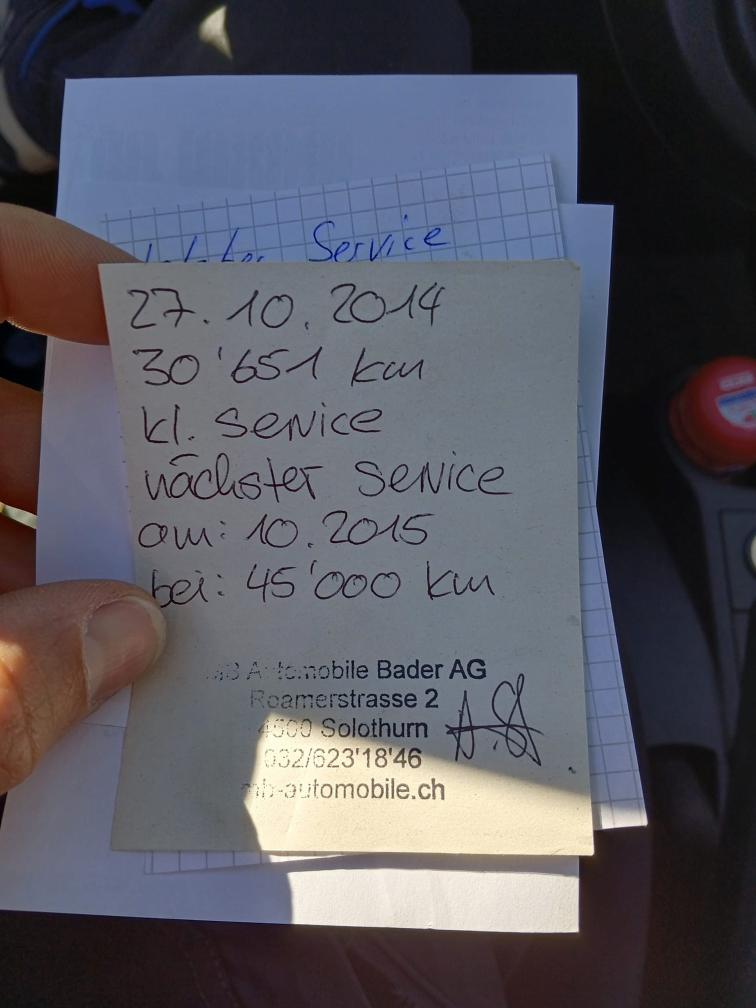 Service
27. 10. 2014
30'651 km
kl. Service
nächster Service
am: 10. 2015
bei: 45'000 km
MB Automobile Bader AG
Roamerstrasse 2
4500 Solothurn
032/623'18'46
mb-automobile.ch